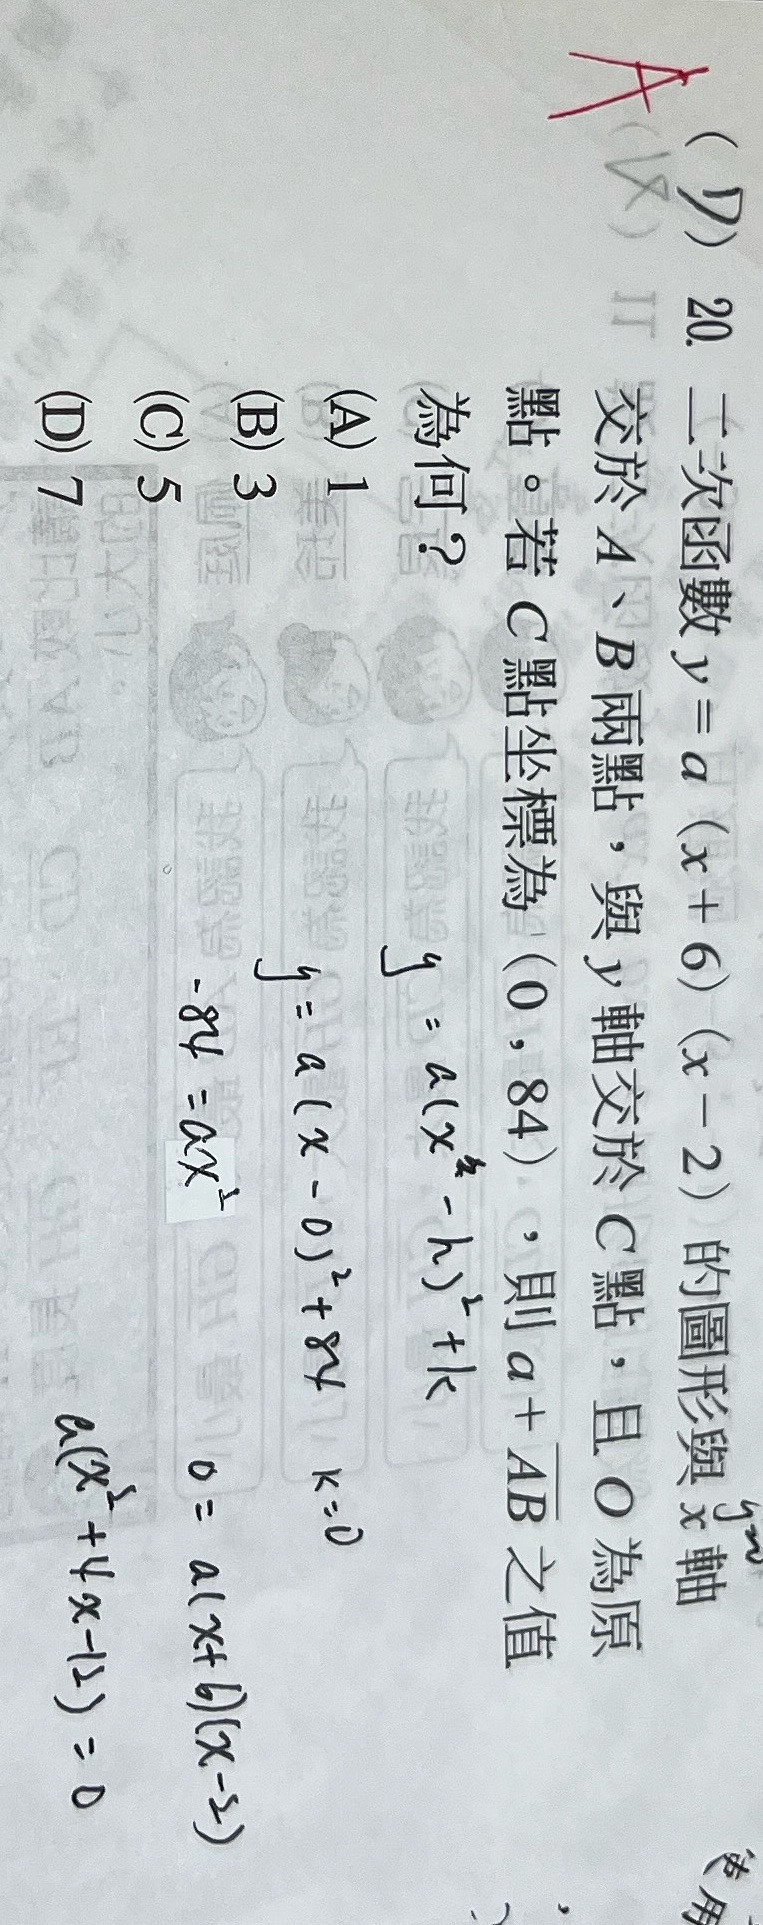 A
(D) 20. 二次函數 y = a (x + 6) (x − 2) 的圖形與 x 軸
y=0
交於 A、B 兩點，與 y 軸交於 C 點，且 O 為原
點。若 C 點坐標為 (0，84)，則 a + \overline{AB} 之值
為何？
(A) 1
(B) 3
(C) 5
(D) 7
y = a(x - h)² + k
y = a(x - 0)² + 84 k=0
-84 = ax²
0 = a(x+6)(x-2)
a(x² + 4x - 12) = 0